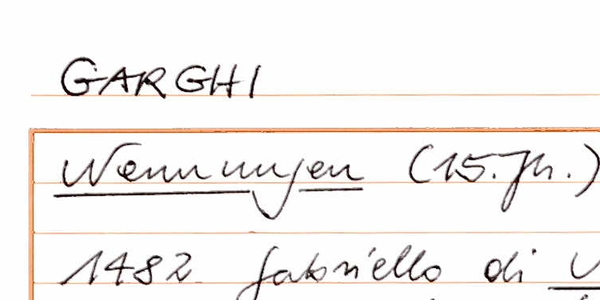 GARGHI
Nennungen (15. Jh.)
1482 Gabriello di